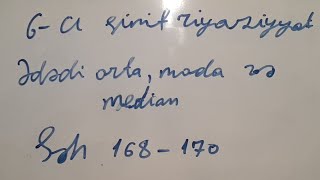 6-cı sinif riyaziyyat
Ədədi orta, moda və
median
Səh 168-170